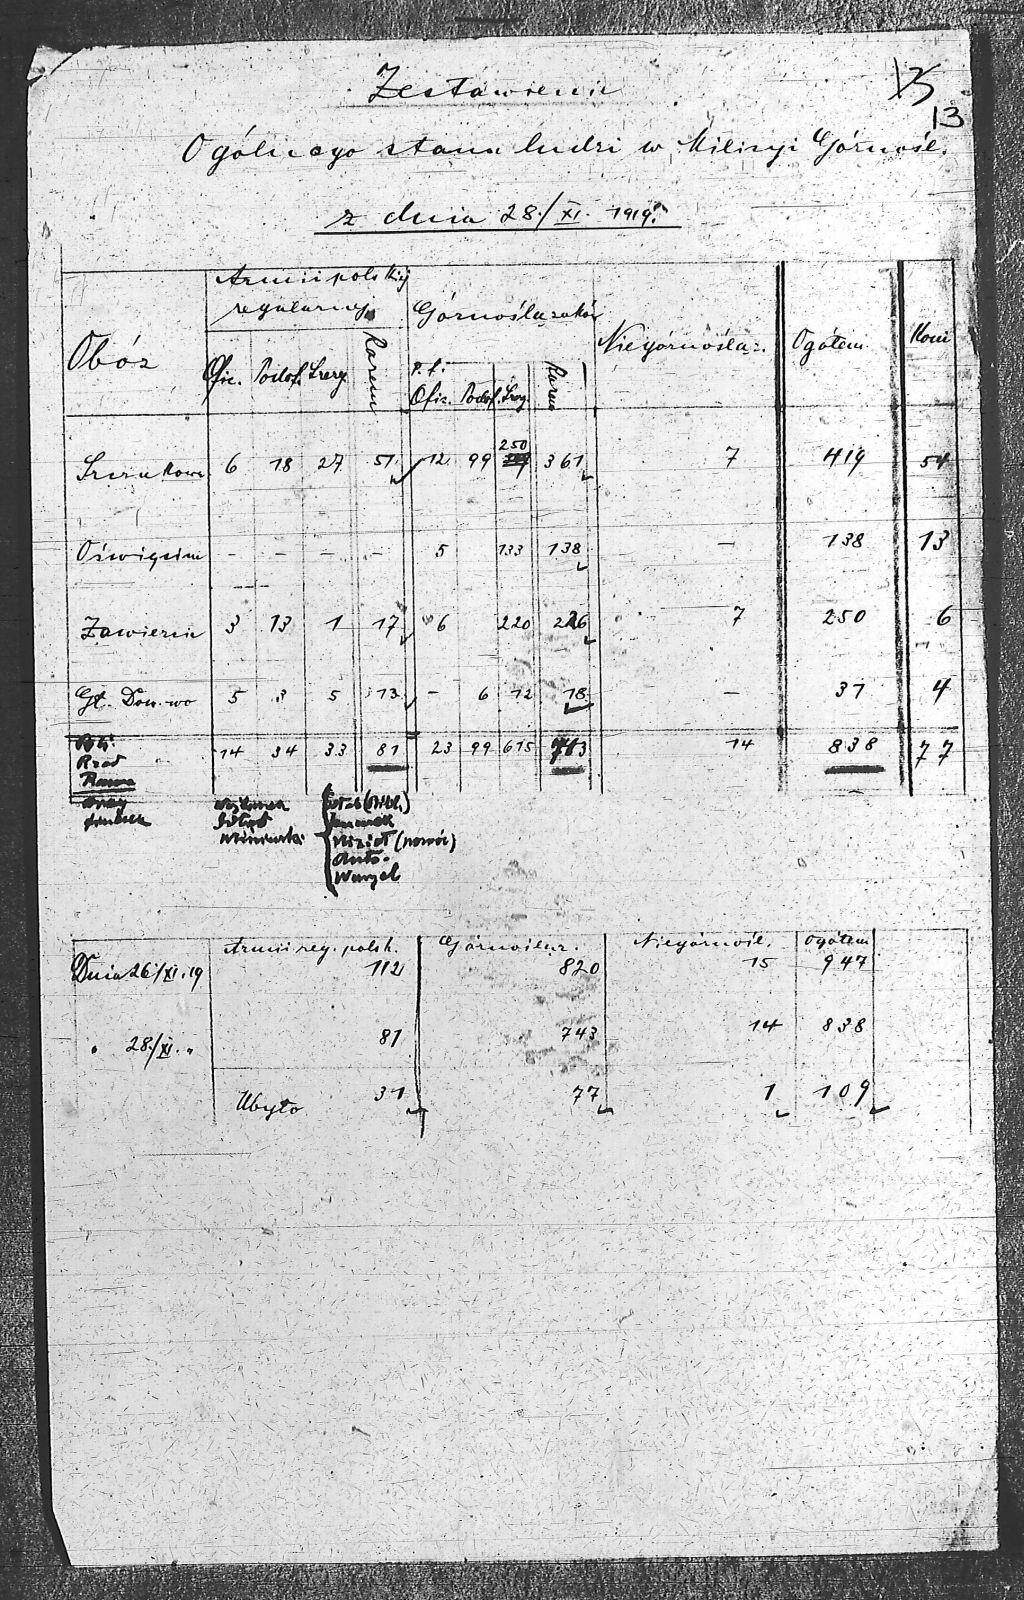 Zestawienie
13
Ogólnego stanu ludzi w Milicyi Górnośl.
z dnia 28./XI. 1919.
Obóz
Armii polskij regularnej
Górnoślązaków
Niegórnośląz.
Ogółem
Koni
Ofic. Podof. Szereg. Razem
p. f.
Ofic. Podof. Szereg. Razem
Szczakowa 6 18 27 51 12 99 250 361 7 419 54
Oświęcim - - - - 5 133 138 - 138 13
Zawiercie 3 13 1 17 6 220 226 7 250 6
Gł. Don-wo 5 3 5 13 - 6 12 18 - 37 4
14 34 33 81 23 99 615 743 14 838 77
Armii reg. polsk. Górnośląz. Niegórnośl. Ogółem
Dnia 26/XI.19 112 820 15 947
" 28./XI. " 81 743 14 838
Ubyło 31 77 1 109